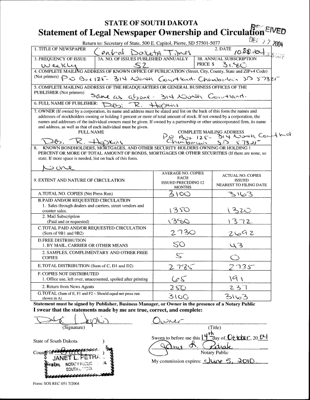 STATE OF SOUTH DAKOTA
Statement of Legal Newspaper Ownership and Circulation
RECEIVED
Return to: Secretary of State, 500 E. Capitol, Pierre, SD 57501-5077
DEC 2004
1. TITLE OF NEWSPAPER
Central Dakota Times
2. DATE
3. FREQUENCY OF ISSUE
Weekly
3A. NO. OF ISSUES PUBLISHED ANNUALLY
52
3B. ANNUAL SUBSCRIPTION
PRICE $
4. COMPLETE MAILING ADDRESS OF KNOWN OFFICE OF PUBLICATION (Street, City, County, State and ZIP+4 Code)
(Not printers)
PO Box 125 - 314 North Courtland Chamberlain SD 57325
5. COMPLETE MAILING ADDRESS OF THE HEADQUARTERS OR GENERAL BUSINESS OFFICES OF THE
PUBLISHER (Not printers)
Same as above - 314 North Courtland
6. FULL NAME OF PUBLISHER:
R. Hopkins
7. OWNER (If owned by a corporation, its name and address must be stated and list on the back of this form the names and
addresses of stockholders owning or holding 1 percent or more of total amount of stock. If not owned by a corporation, the
names and addresses of the individual owners must be given. If owned by a partnership or other unincorporated firm, its name
and address, as well as that of each individual must be given.
FULL NAME
COMPLETE MAILING ADDRESS
R. Hopkins
PO Box 125 - 314 North Courtland
Chamberlain SD 57325
8. KNOWN BONDHOLDERS, MORTGAGES, AND OTHER SECURITY HOLDERS OWNING OR HOLDING 1
PERCENT OR MORE OF TOTAL AMOUNT OF BONDS, MORTGAGES OR OTHER SECURITIES (If there are none, so
state. If more space is needed, list on back of this form.
None
9. EXTENT AND NATURE OF CIRCULATION
AVERAGE NO. COPIES
EACH
ISSUED PRECEDING 12
MONTHS
ACTUAL NO. COPIES
ISSUED
NEAREST TO FILING DATE
A. TOTAL NO. COPIES (Net Press Run)
3100
3163
B. PAID AND/OR REQUESTED CIRCULATION
1. Sales through dealers and carriers, street vendors and
counter sales:
1350
1320
2. Mail Subscription
(Paid and/or requested)
1372
C. TOTAL PAID AND/OR REQUESTED CIRCULATION
(Sum of 9B1 and 9B2)
2730
2692
D. FREE DISTRIBUTION
1. BY MAIL, CARRIER OR OTHER MEANS
50
43
2. SAMPLES, COMPLIMENTARY AND OTHER FREE
COPIES
5
0
E. TOTAL DISTRIBUTION (Sum of C, D1 and D2)
2785
2735
F. COPIES NOT DISTRIBUTED
1. Office use, left over, unaccounted, spoiled after printing
65
191
2. Return from News Agents
250
237
G. TOTAL (Sum of E, F1 and F2 - Should equal net press run
shown in A)
3100
3163
Statement must be signed by Publisher, Business Manager, or Owner in the presence of a Notary Public
I swear that the statements made by me are true, correct, and complete:
Owner
(Signature)
(Title)
State of South Dakota )
Sworn to before me this 14th Day of October 2004
County
Notary Public
JANET L. PETRAK
NOTARY PUBLIC
SOUTH DAKOTA
My commission expires: June 5, 2010
Form: SOS REC 051 7/2004